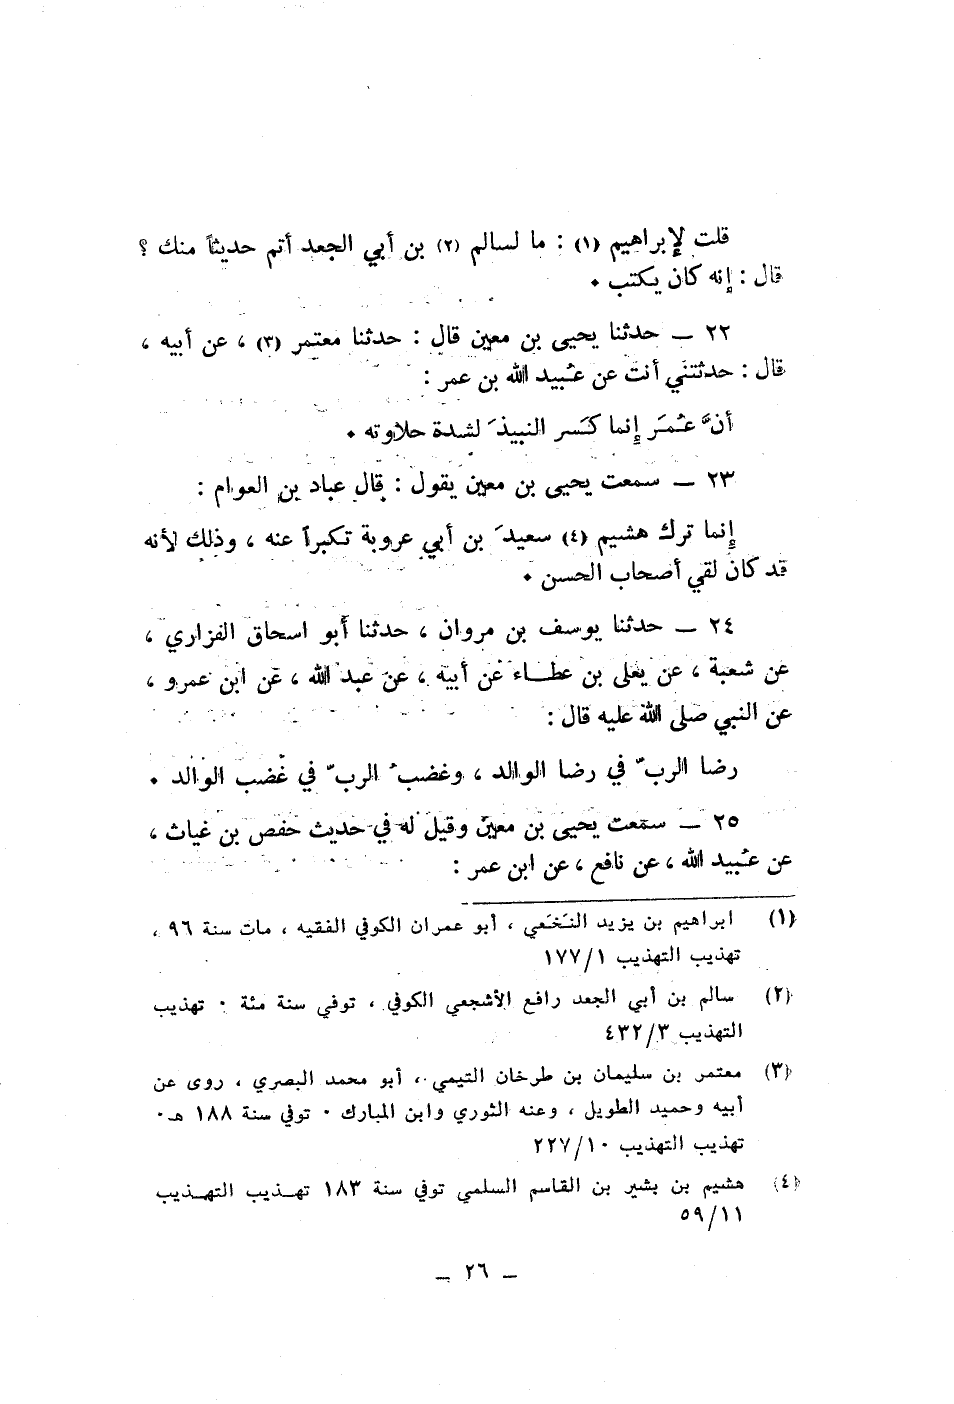 قلت لإبراهيم (١) : ما لسالم (٢) بن أبي الجعد أتم حديثاً منك ؟
قال : إنه كان يكتب .
٢٢ ــ حدثنا يحيى بن معين قال : حدثنا معتمر (٣) ، عن أبيه ،
قال : حدثتني أنت عن عُبيد الله بن عمر :
أنَّ عُمَر إنما كَسر النبيذَ لشدة حلاوته .
٢٣ ــ سمعت يحيى بن معين يقول : قال عباد بن العوام :
إنما ترك هشيم (٤) سعيدَ بن أبي عروبة تكبراً عنه ، وذلك لأنه
قد كان لقي أصحاب الحسن .
٢٤ ــ حدثنا يوسف بن مروان ، حدثنا أبو اسحاق الفزاري ،
عن شعبة ، عن يعلى بن عطاء عن أبيه ، عن عبد الله ، عن ابن عمرو ،
عن النبي صلى الله عليه قال :
رضا الربّ في رضا الوالد ، وغضبُ الربّ في غضب الوالد .
٢٥ ــ سمعت يحيى بن معين وقيل له في حديث حفص بن غياث ،
عن عُبيد الله ، عن نافع ، عن ابن عمر :
(١) ابراهيم بن يزيد النَخَعي ، أبو عمران الكوفي الفقيه ، مات سنة ٩٦ ،
تهذيب التهذيب ١/١٧٧
(٢) سالم بن أبي الجعد رافع الأشجعي الكوفي ، توفي سنة مئة . تهذيب
التهذيب ٣/٤٣٢
(٣) معتمر بن سليمان بن طرخان التيمي ، أبو محمد البصري ، روى عن
أبيه وحميد الطويل ، وعنه الثوري وابن المبارك . توفي سنة ١٨٨ هـ .
تهذيب التهذيب ١٠/٢٢٧
(٤) هشيم بن بشير بن القاسم السلمي توفي سنة ١٨٣ تهـذيب التهـذيب
١١/٥٩
ــ ٢٦ ــ